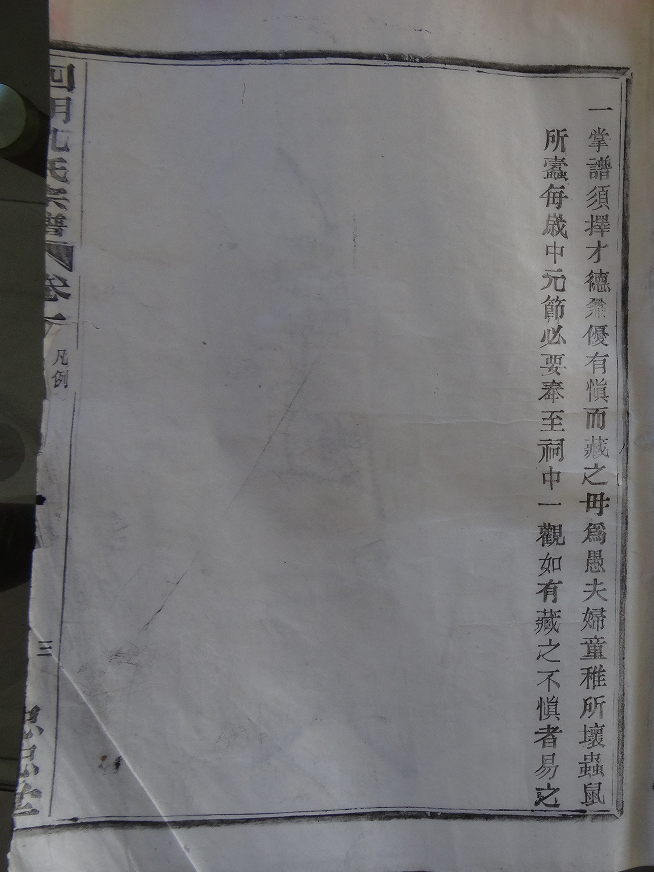 一掌譜須擇才德兼優有愼而藏之毋爲愚夫婦童稚所壞蟲鼠
所蠹每歲中元節必要奉至祠中一觀如有藏之不愼者易之
氏宗譜
卷
凡例
三